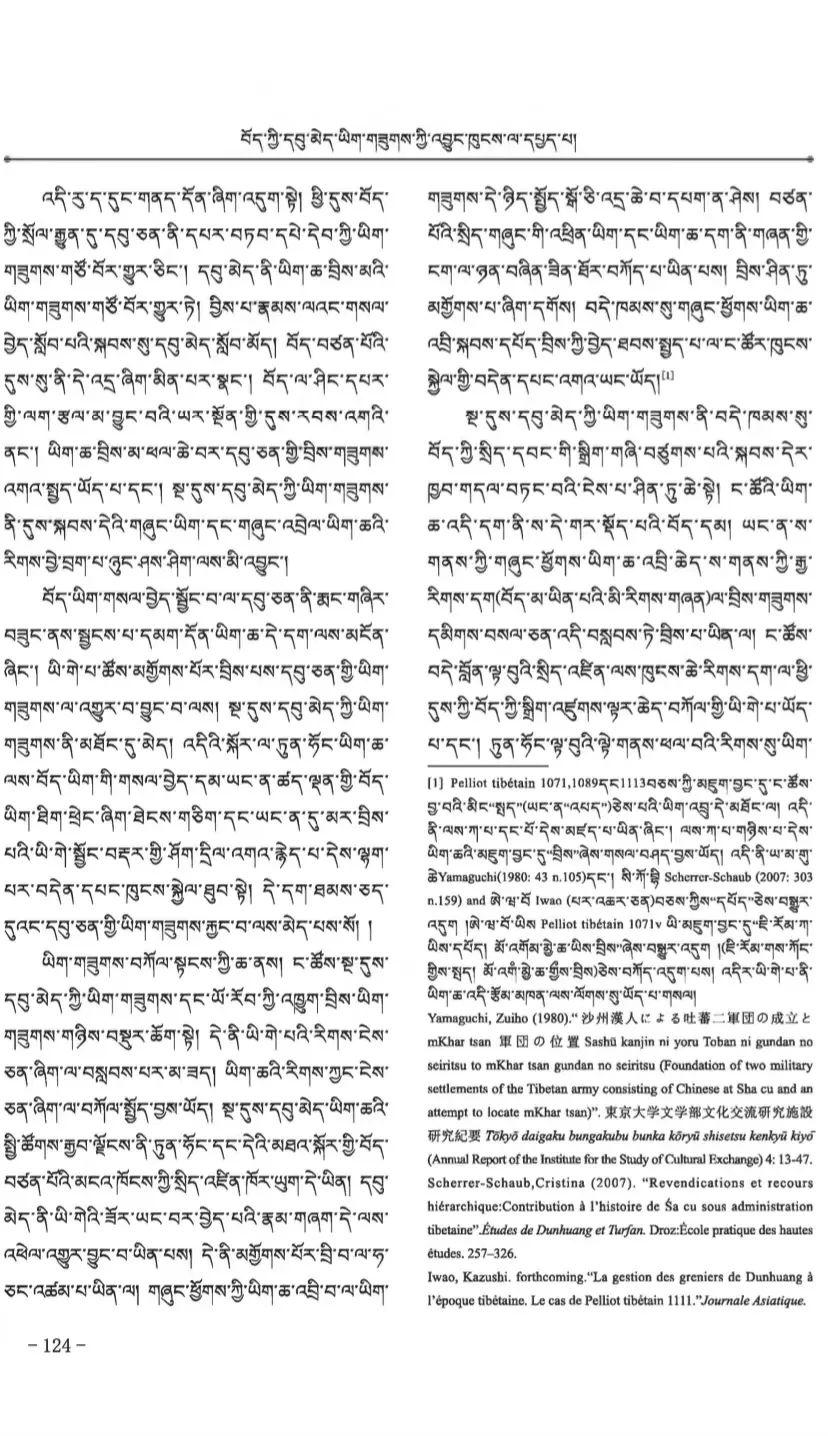 བོད་ཀྱི་དབུ་མེད་ཡིག་གཟུགས་ཀྱི་འབྱུང་ཁུངས་ལ་དཔྱད་པ།
འདི་རུ་ད་དུང་གནད་དོན་ཞིག་འདུག་སྟེ། ཕྱི་དུས་བོད་
ཀྱི་སྲོལ་རྒྱུན་དུ་དབུ་ཅན་ནི་དཔར་བཏབ་དཔེ་དེབ་ཀྱི་ཡིག་
གཟུགས་གཙོ་བོར་གྱུར་ཅིང་། དབུ་མེད་ནི་ཡིག་ཆ་བྲིས་མའི་
ཡིག་གཟུགས་གཙོ་བོར་གྱུར་ཏེ། བྱིས་པ་རྣམས་ལའང་གསལ་
བྱེད་སློབ་པའི་སྐབས་སུ་དབུ་མེད་སློབ་མོད། བོད་བཙན་པོའི་
དུས་སུ་ནི་དེ་འདྲ་ཞིག་མིན་པར་སྣང་། བོད་ལ་ཤིང་དཔར་
གྱི་ལག་རྩལ་མ་བྱུང་བའི་ཡར་སྔོན་གྱི་དུས་རབས་འགའི་
ནང་། ཡིག་ཆ་བྲིས་མ་ཕལ་ཆེ་བར་དབུ་ཅན་གྱི་བྲིས་གཟུགས་
འགའ་སྤྱད་ཡོད་པ་དང་། སྔ་དུས་དབུ་མེད་ཀྱི་ཡིག་གཟུགས་
ནི་དུས་སྐབས་དེའི་གཞུང་ཡིག་དང་གཞུང་འབྲེལ་ཡིག་ཆའི་
རིགས་བྱེ་བྲག་པ་ཉུང་ཤས་ཤིག་ལས་མི་འབྱུང་།
བོད་ཡིག་གསལ་བྱེད་སྦྱོང་བ་ལ་དབུ་ཅན་ནི་རྨང་གཞིར་
བཟུང་ནས་སྦྱངས་པ་དམག་དོན་ཡིག་ཆ་དེ་དག་ལས་མངོན་
ཞིང་། ཡི་གེ་པ་ཚོས་མགྱོགས་པོར་བྲིས་པས་དབུ་ཅན་གྱི་ཡིག་
གཟུགས་ལ་འགྱུར་བ་བྱུང་བ་ལས། སྔ་དུས་དབུ་མེད་ཀྱི་ཡིག་
གཟུགས་ནི་མཐོང་དུ་མེད། འདིའི་སྐོར་ལ་ཏུན་ཧོང་ཡིག་ཆ་
ལས་བོད་ཡིག་གི་གསལ་བྱེད་དམ་ཡང་ན་ཚད་ལྡན་གྱི་བོད་
ཡིག་ཐིག་ཕྲེང་ཞིག་ཐེངས་གཅིག་དང་ཡང་ན་དུ་མར་བྲིས་
པའི་ཡི་གེ་སྦྱོང་བརྡར་གྱི་ཤོག་དྲིལ་འགའ་རྙེད་པ་དེས་ལྷག་
པར་བདེན་དཔང་ཁུངས་སྐྱེལ་ཐུབ་སྟེ། དེ་དག་ཐམས་ཅད་
དུའང་དབུ་ཅན་གྱི་ཡིག་གཟུགས་རྐྱང་བ་ལས་མེད་པས་སོ། །
ཡིག་གཟུགས་བཀོལ་སྟངས་ཀྱི་ཆ་ནས། ང་ཚོས་སྔ་དུས་
དབུ་མེད་ཀྱི་ཡིག་གཟུགས་དང་ཡོ་རོབ་ཀྱི་འཁྱུག་བྲིས་ཡིག་
གཟུགས་གཉིས་བསྡུར་ཆོག་སྟེ། དེ་ནི་ཡི་གེ་པའི་རིགས་ངེས་
ཅན་ཞིག་ལ་བསླབས་པར་མ་ཟད། ཡིག་ཆའི་རིགས་ཀྱང་ངེས་
ཅན་ཞིག་ལ་བཀོལ་སྤྱོད་བྱས་ཡོད། སྔ་དུས་དབུ་མེད་ཡིག་ཆའི་
སྤྱི་ཚོགས་རྒྱབ་ལྗོངས་ནི་ཏུན་ཧོང་དང་དེའི་མཐའ་སྐོར་གྱི་བོད་
བཙན་པོའི་མངའ་ཁོངས་ཀྱི་སྲིད་འཛིན་ཁོར་ཡུག་དེ་ཡིན། དབུ་
མེད་ནི་ཡི་གེའི་ཟོར་ཡང་བར་བྱེད་པའི་རྣམ་གཞག་དེ་ལས་
འཕེལ་འགྱུར་བྱུང་བ་ཡིན་པས། དེ་ནི་མགྱོགས་པོར་བྲི་བ་ལ་ཧ་
ཅང་འཚམ་པ་ཡིན་ལ། གཞུང་ཕྱོགས་ཀྱི་ཡིག་ཆ་འབྲི་བ་ལ་ཡིག་
གཟུགས་དེ་ཉིད་སྤྱོད་སྒོ་ཅི་འདྲ་ཆེ་བ་དཔག་ན་ཤེས། བཙན་
པོའི་སྲིད་གཞུང་གི་འཕྲིན་ཡིག་དང་ཡིག་ཆ་དག་ནི་གཞན་གྱི་
ངག་ལ་ཉན་བཞིན་ཟིན་ཐོར་བཀོད་པ་ཡིན་པས། བྲིས་ཤིན་ཏུ་
མགྱོགས་པ་ཞིག་དགོས། བདེ་ཁམས་སུ་གཞུང་ཕྱོགས་ཡིག་ཆ་
འབྲི་སྐབས་དཔོད་བྲིས་ཀྱི་བྱེད་ཐབས་སྤྱད་པ་ལ་ང་ཚོར་ཁུངས་
སྐྱེལ་གྱི་བདེན་དཔང་འགའ་ཡང་ཡོད།[1]
སྔ་དུས་དབུ་མེད་ཀྱི་ཡིག་གཟུགས་ནི་བདེ་ཁམས་སུ་
བོད་ཀྱི་སྲིད་དབང་གི་སྒྲིག་གཞི་བཙུགས་པའི་སྐབས་དེར་
ཁྱབ་གདལ་བཏང་བའི་ངེས་པ་ཤིན་ཏུ་ཆེ་སྟེ། ང་ཚོའི་ཡིག་
ཆ་འདི་དག་ནི་ས་དེ་གར་སྡོད་པའི་བོད་དམ། ཡང་ན་ས་
གནས་ཀྱི་གཞུང་ཕྱོགས་ཡིག་ཆ་འབྲི་ཆེད་ས་གནས་ཀྱི་རྒྱ་
རིགས་དག(བོད་མ་ཡིན་པའི་མི་རིགས་གཞན)ལ་བྲིས་གཟུགས་
དམིགས་བསལ་ཅན་འདི་བསླབས་ཏེ་བྲིས་པ་ཡིན་ལ། ང་ཚོས་
བདེ་བློན་ལྟ་བུའི་སྲིད་འཛིན་ལས་ཁུངས་ཆེ་རིགས་དག་ལ་ཕྱི་
དུས་ཀྱི་བོད་ཀྱི་སྒྲིག་འཛུགས་ལྟར་ཆེད་བཀོལ་གྱི་ཡི་གེ་པ་ཡོད་
པ་དང་། ཏུན་ཧོང་ལྟ་བུའི་ལྟེ་གནས་ཕལ་བའི་རིགས་སུ་ཡིག་
[1] Pelliot tibétain 1071,1089དང1113བཅས་ཀྱི་མཇུག་བྱང་དུ་ང་ཚོས་
བྱ་བའི་མིང“སྤད”(ཡང་ན“འཔད”)ཅེས་པའི་ཡིག་འབྲུ་དེ་མཐོང་ལ། འདི་
ནི་ལས་ཀ་པ་དང་པོ་དེས་མཛད་པ་ཡིན་ཞིང་། ལས་ཀ་པ་གཉིས་པ་དེས་
ཡིག་ཆའི་མཇུག་བྱང་དུ“བྲིས”ཞེས་གསལ་བཤད་བྱས་ཡོད། འདི་ནི་ཡ་མ་གུ་
ཆེYamaguchi(1980: 43 n.105)དང་། Scherrer-Schaub (2007: 303
n.159) and ཨེ་ཝ་བོ Iwao (པར་འཆར་ཅན)བཅས་ཀྱིས“དཔོད”ཅེས་བསྒྱུར་
འདུག །ཨེ་ཝ་བོ་ཡིས Pelliot tibétain 1071v ཡི་མཇུག་བྱང་དུ“ཇི་རོམ་ཀ་
ཡིས་དཔོད། མོ་འགོམ་མྱེ་ཆ་ཡིས་བྲིས”ཞེས་བསྒྱུར་འདུག །(ཇི་རོམ་གས་ཀོང་
གྱིས་སྤད། མོ་འགོཾ་མྱེ་ཆ་གྱིས་བྲིས)ཅེས་བཀོད་འདུག་པས། འདིར་ཡི་གེ་པ་ནི་
ཡིག་ཆ་འདི་རྩོམ་མཁན་ལས་ལོགས་སུ་ཡོད་པ་གསལ།
Yamaguchi, Zuiho (1980).“沙州漢人による吐蕃二軍団の成立と
mKhar tsan 軍団の位置 Sashū kanjin ni yoru Toban ni gundan no
seiritsu to mKhar tsan gundan no seiritsu (Foundation of two military
settlements of the Tibetan army consisting of Chinese at Sha cu and an
attempt to locate mKhar tsan)”. 東京大学文学部文化交流研究施設
研究紀要 Tōkyō daigaku bungakubu bunka kōryū shisetsu kenkyū kiyō
(Annual Report of the Institute for the Study of Cultural Exchange) 4: 13-47.
Scherrer-Schaub,Cristina (2007). “Revendications et recours
hiérarchique:Contribution à l’histoire de Śa cu sous administration
tibetaine”.Études de Dunhuang et Turfan. Droz:École pratique des hautes
études. 257–326.
Iwao, Kazushi. forthcoming.“La gestion des greniers de Dunhuang à
l’époque tibétaine. Le cas de Pelliot tibétain 1111.”Journale Asiatique.
- 124 -